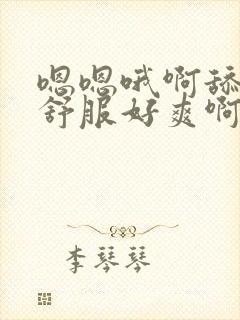 嗯嗯哦啊舔
舒服好爽啊
李琴琴